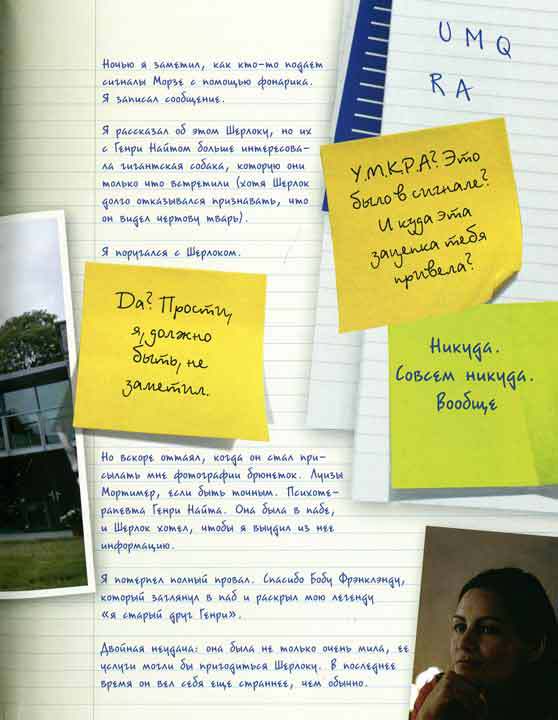 Ночью я заметил, как кто-то подает
сигналы Морзе с помощью фонарика.
Я записал сообщение.
Я рассказал об этом Шерлоку, но их
с Генри Найтом больше интересова-
ла гигантская собака, которую они
только что встретили (хотя Шерлок
долго отказывался признавать, что
он видел чертову тварь).
Я поругался с Шерлоком.
U M Q
R A
У.М.К.Р.А? Это
было в сигнале?
И куда эта
зацепка тебя
привела?
Да? Прости,
я, должно
быть, не
заметил.
Никуда.
Совсем никуда.
Вообще
Но вскоре оттаял, когда он стал при-
сылать мне фотографии брюнеток. Луизы
Мортимер, если быть точным. Психоте-
рапевта Генри Найта. Она была в пабе,
и Шерлок хотел, чтобы я выудил из нее
информацию.
Я потерпел полный провал. Спасибо Бобу Фрэнклэнду,
который заглянул в паб и раскрыл мою легенду
«я старый друг Генри».
Двойная неудача: она была не только очень мила, ее
услуги могли бы пригодиться Шерлоку. В последнее
время он вел себя еще страннее, чем обычно.